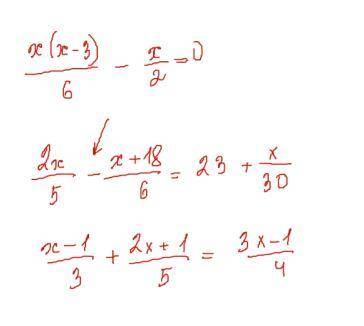 x(x-3)/6 - x/2 = 0
2x/5 - x+18/6 = 23 + x/30
x-1/3 + 2x+1/5 = 3x-1/4